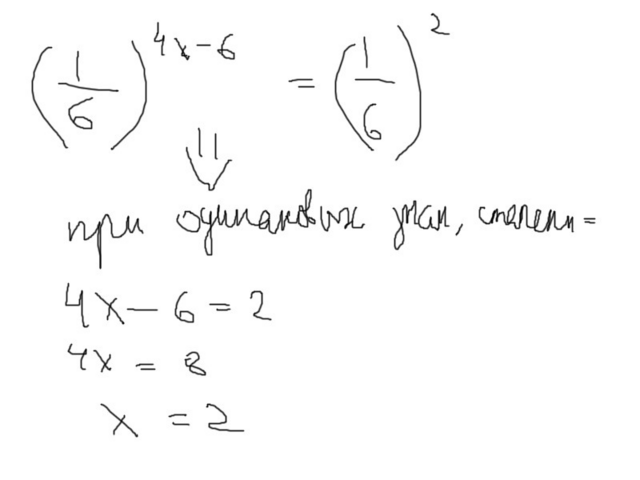 (1/6)^(4x-6) = (1/6)^2
⇓
при одинаковых знач, степени =
4x - 6 = 2
4x = 8
x = 2